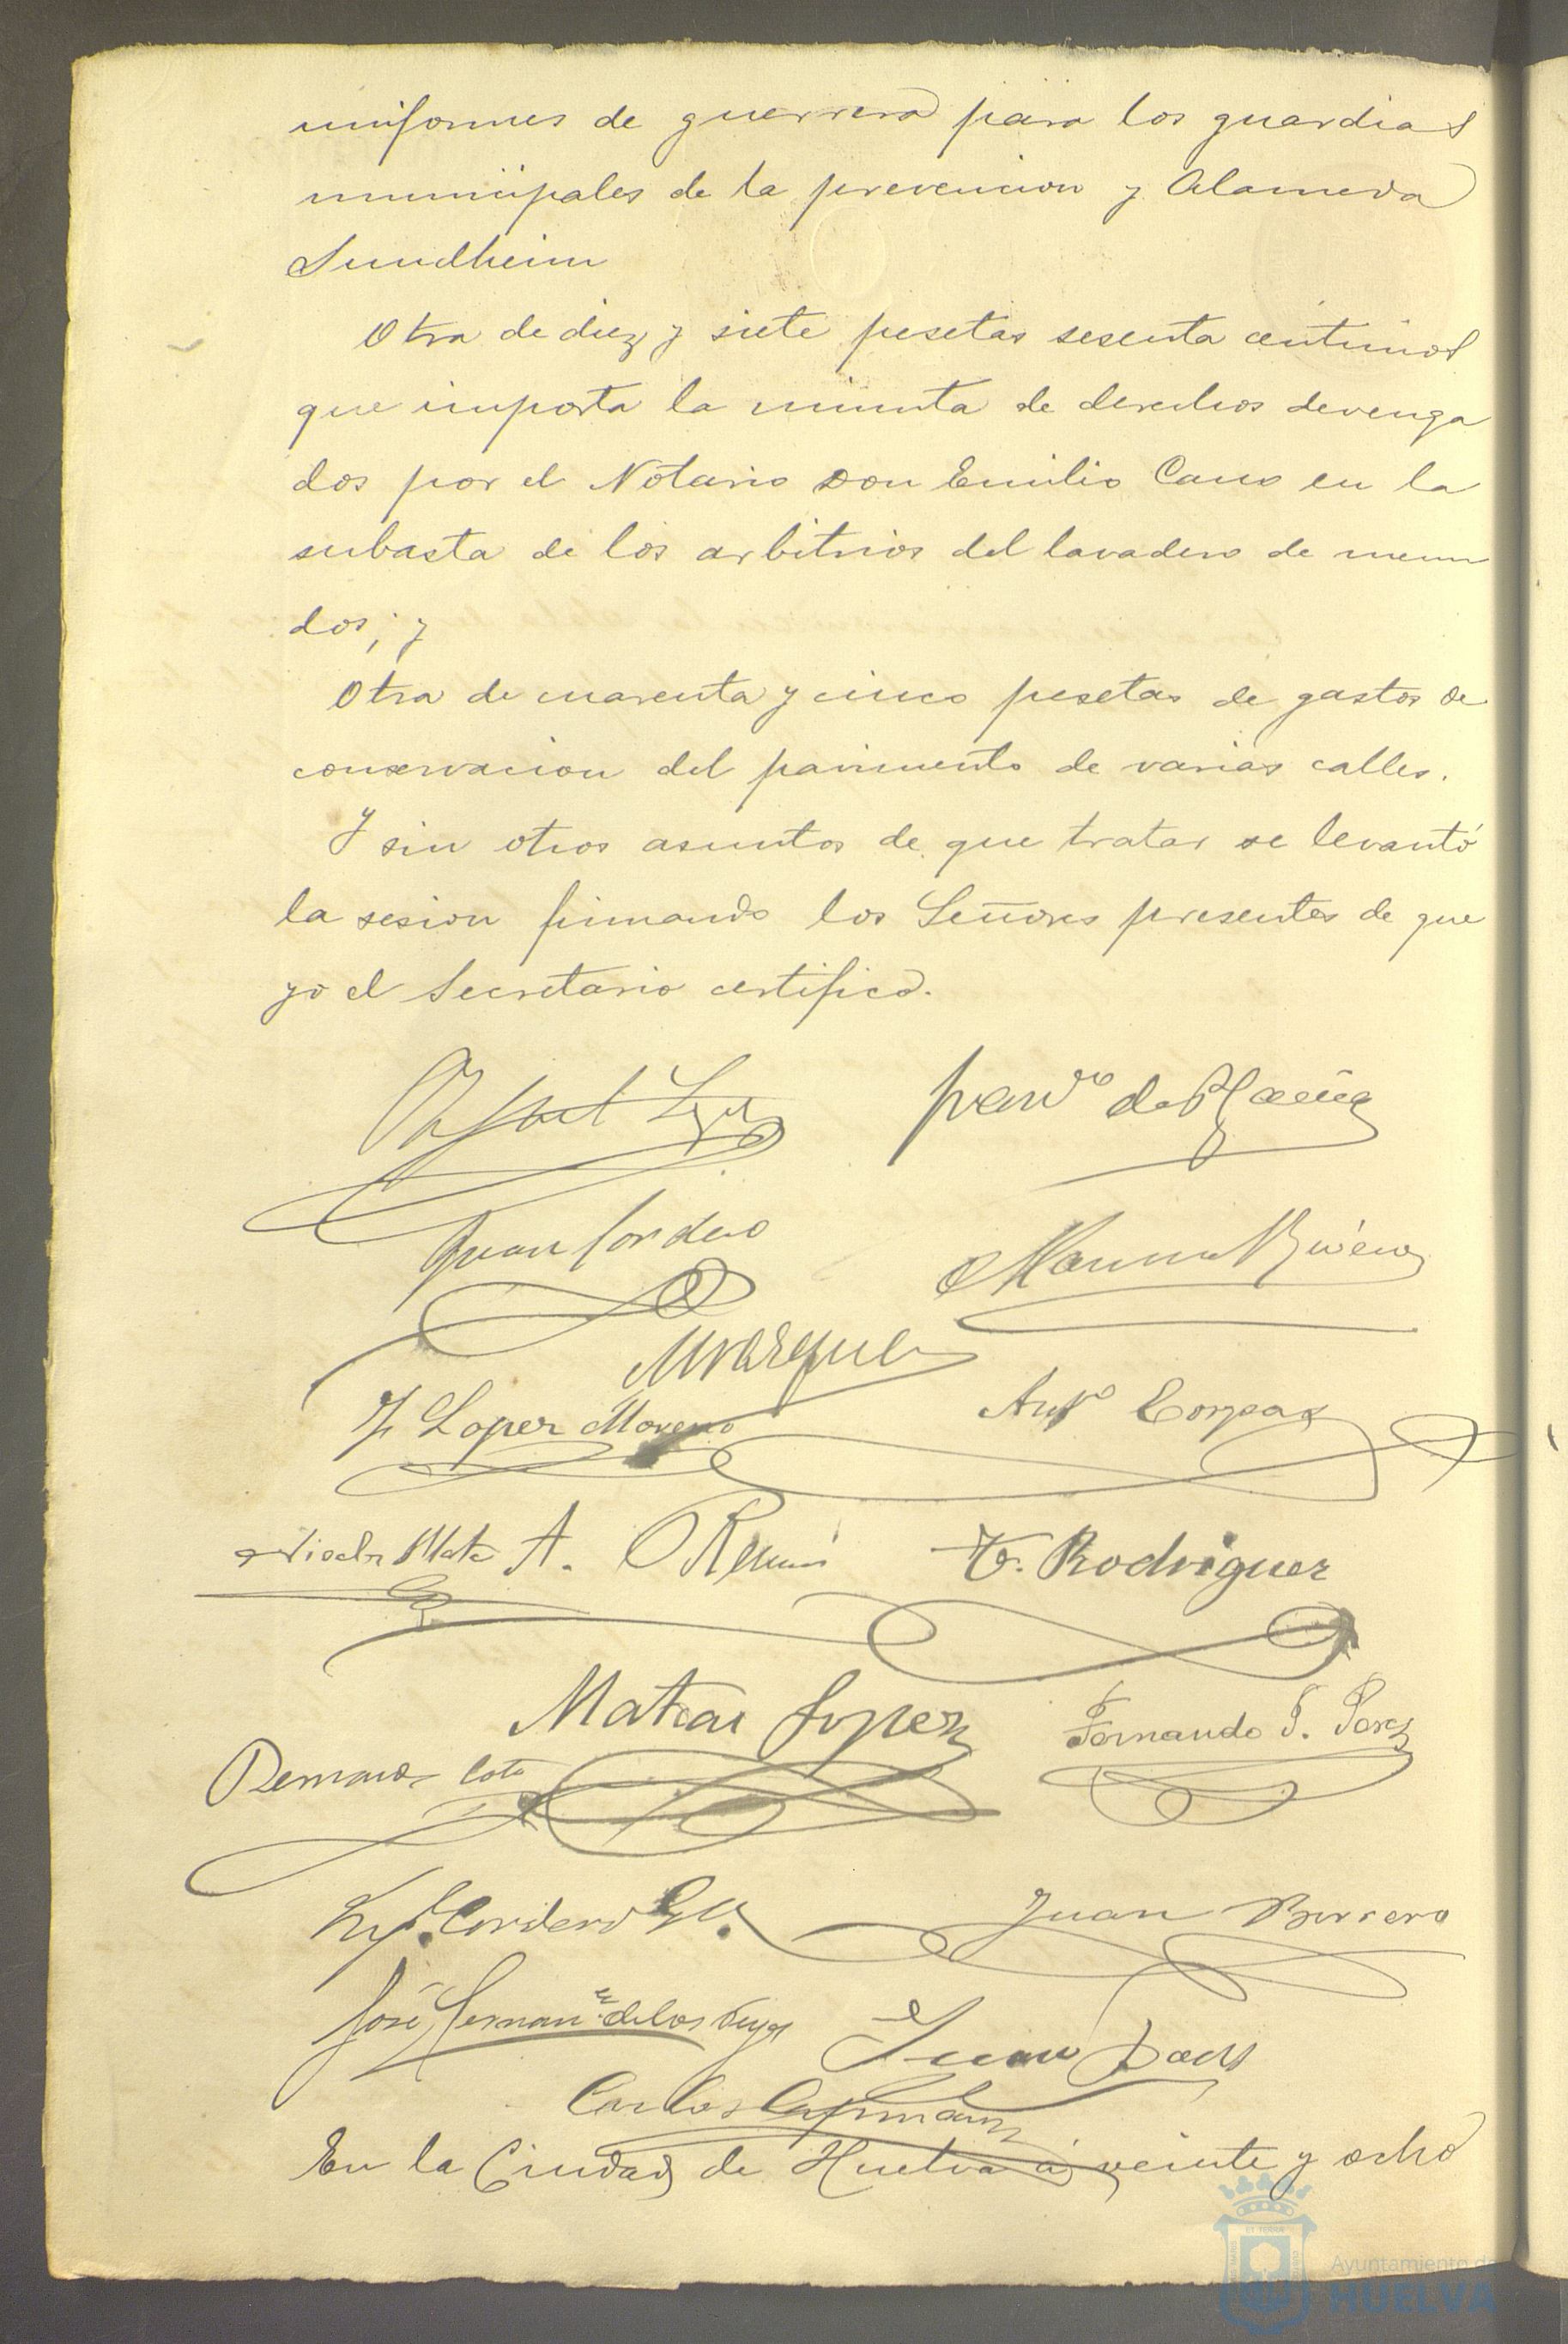 uniformes de guerrera para los guardias
municipales de la prevencion y Alameda
Sundheim
Otra de diez y siete pesetas sesenta centimos
que importa la minuta de derechos devenga
dos por el Notario Don Emilio Cano en la
subasta de los arbitrios del lavadero de menu
dos; y
Otra de cuarenta y cinco pesetas de gastos de
conservacion del pavimento de varias calles.
Y sin otros asuntos de que tratar se levantó
la sesion firmando los Señores presentes de que
yo el Secretario certifico.
Juan Cordero
Manuel
J. Lopez Moreno
Antº Corpas
Mata A.
T. Rodriguez
Matias Lopez
Fernando S. Perez
Bernardo Coto
Cordero
Juan Borrero
José Hernanez de los
Juan
Carlos
En la Ciudad de Huelva á veinte y ocho
Ayuntamiento de
HUELVA